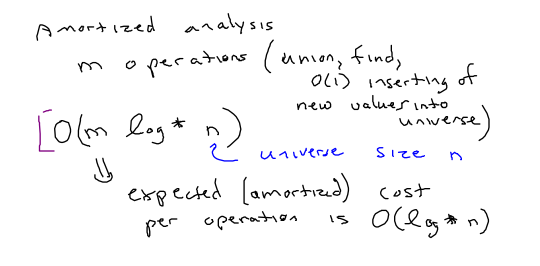 Amortized analysis
m operations (union, find,
O(1) inserting of
new values into
universe)
[O(m log* n)
universe size n
⇓
expected (amortized) cost
per operation is O(log* n)